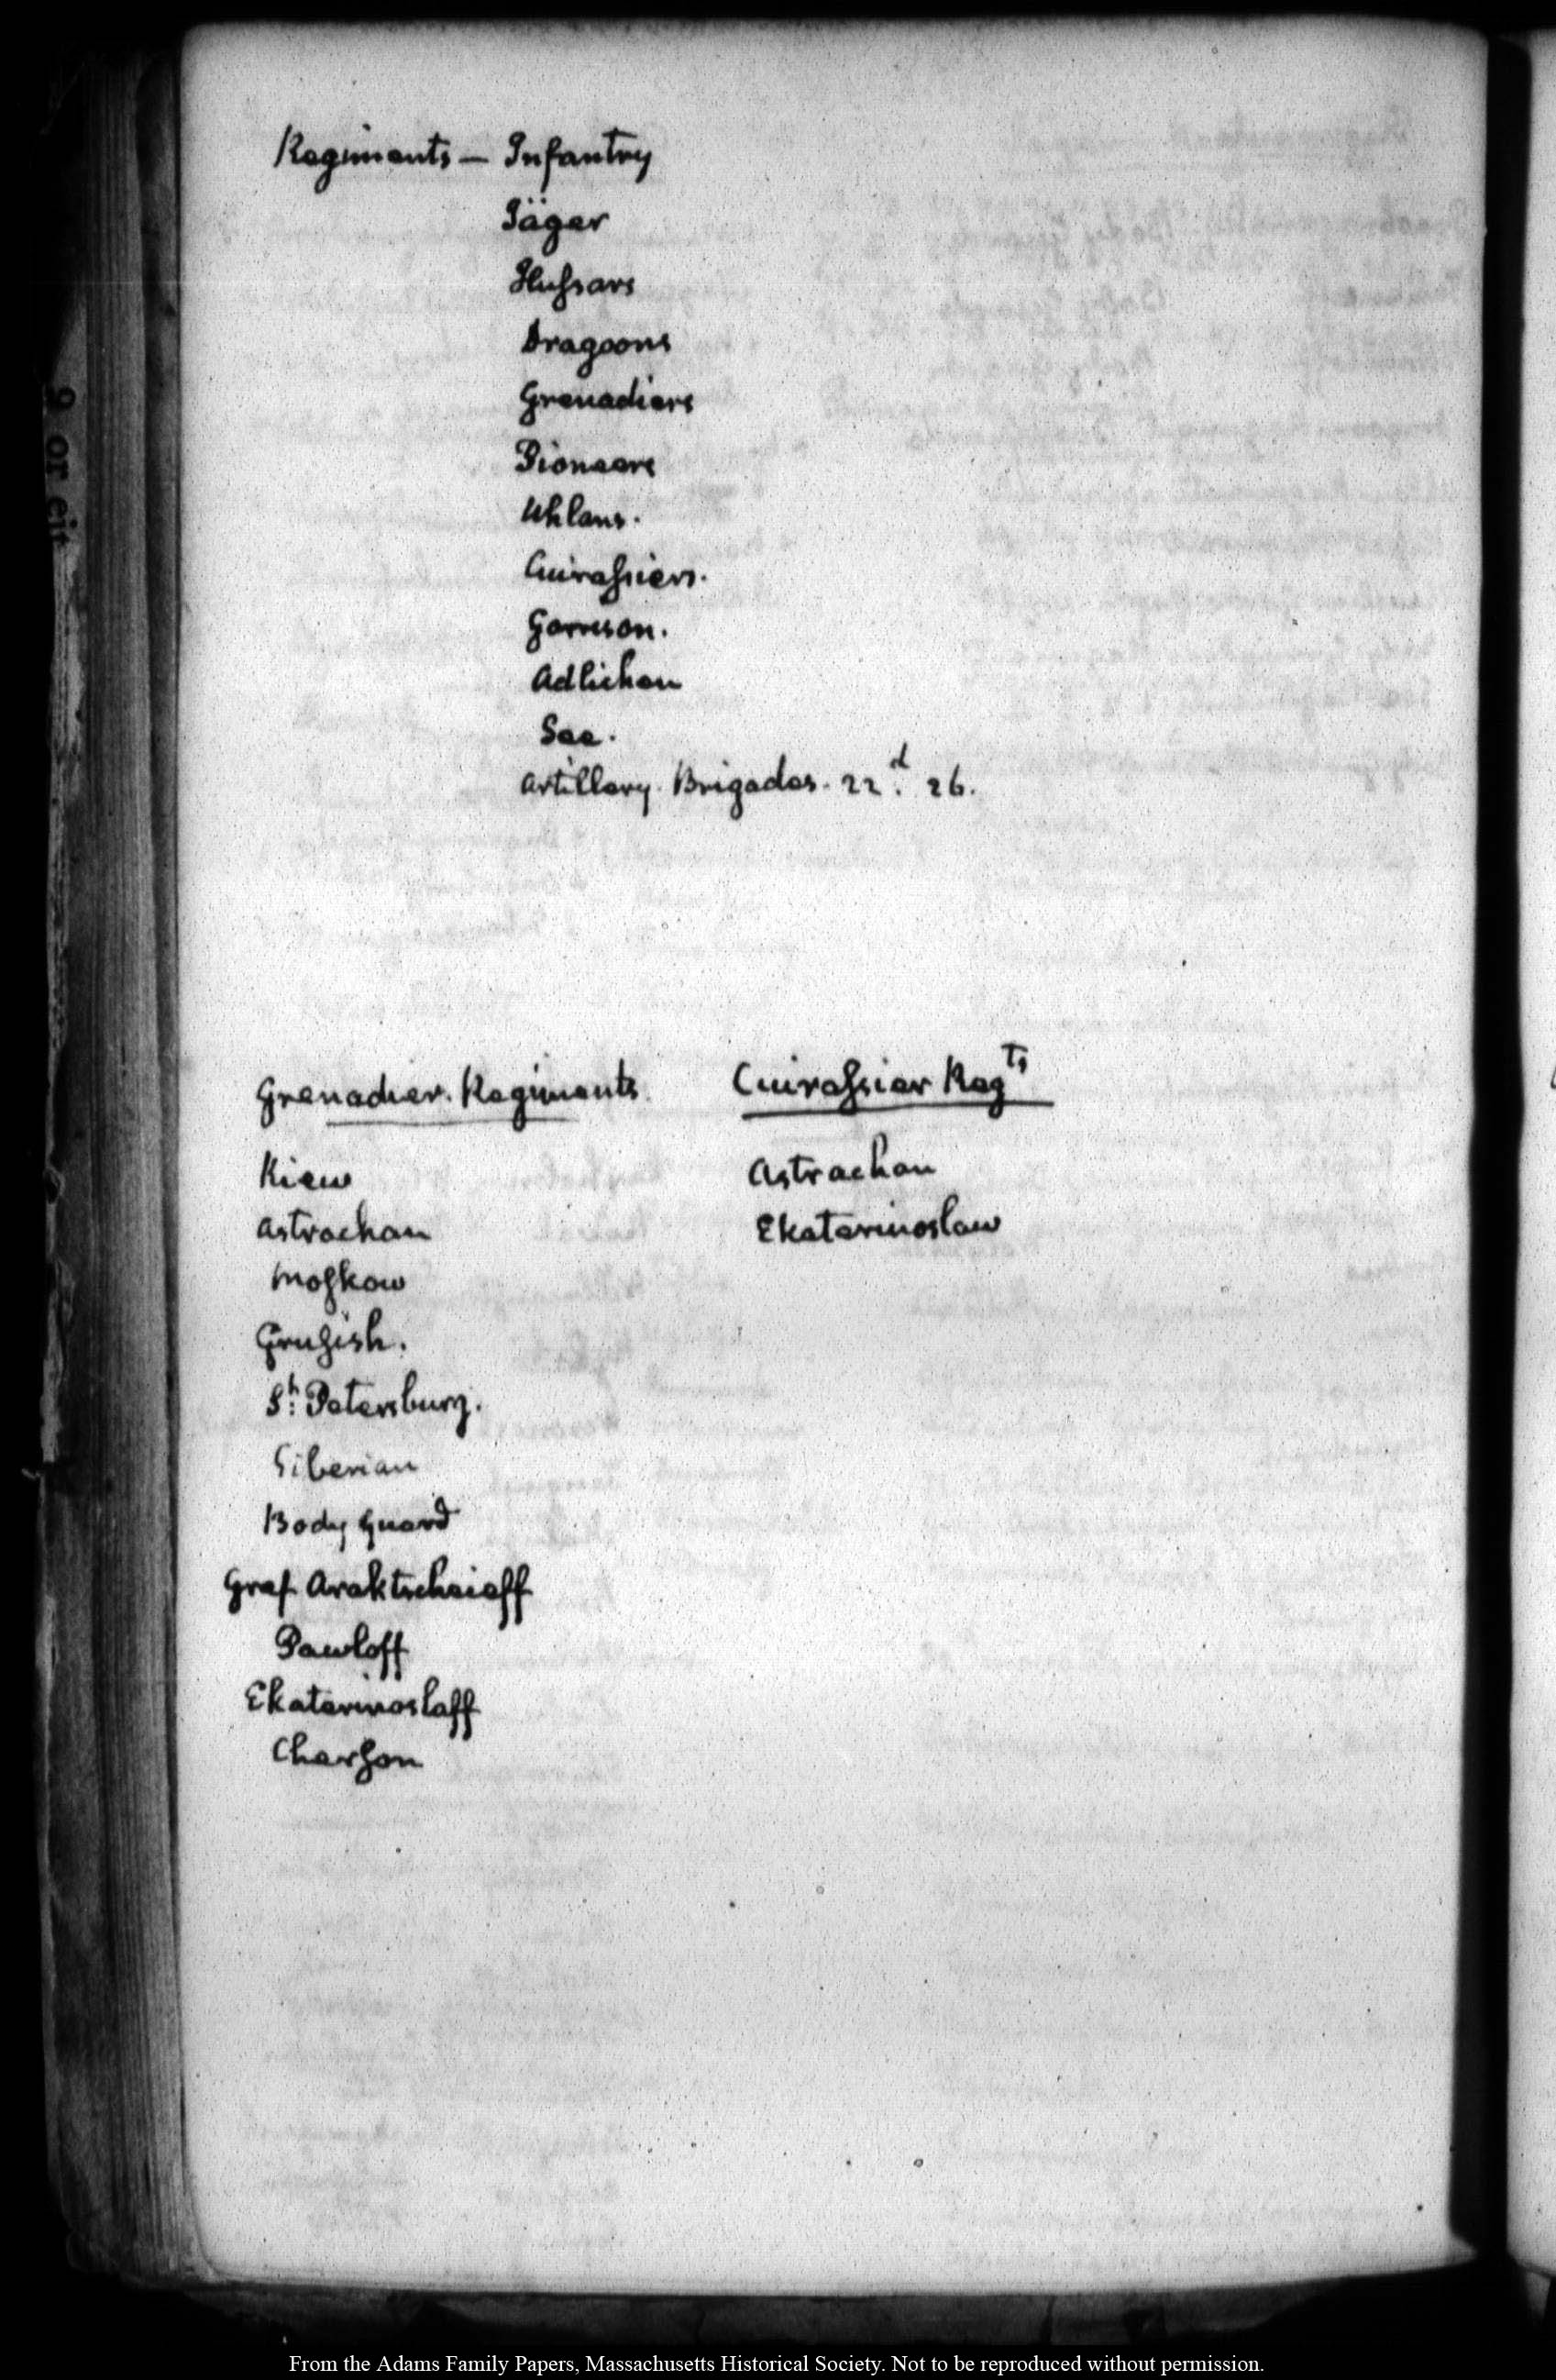 Regiments — Infantry
Jäger
Hussars
Dragoons
Grenadiers
Pioneers
Uhlans.
Cuirassiers.
Garrison.
Adlichen
See.
Artillery. Brigades. 22.d 26.
Grenadier. Regiments
Kiew
Astrachan
Moskow
Grusish.
St: Petersburg.
Siberian
Body Guard
Graf Araktscheieff
Pawloff
Ekaterinoslaff
Cherson
Cuirassier Regts
Astrachan
Ekaterinoslaw
From the Adams Family Papers, Massachusetts Historical Society. Not to be reproduced without permission.